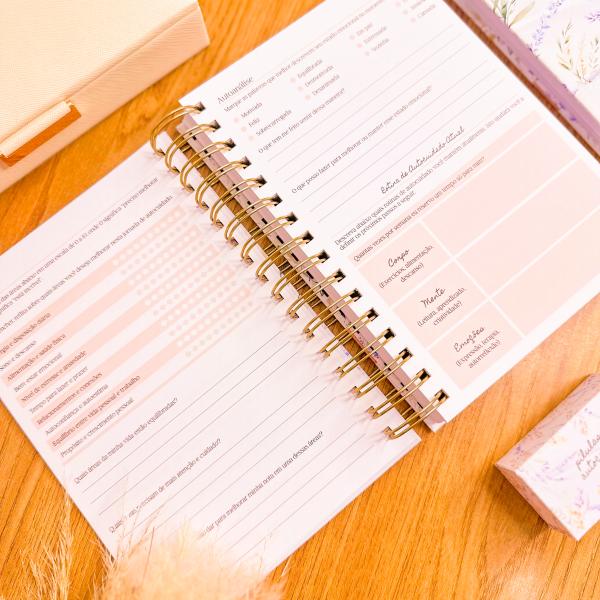 das áreas abaixo em uma escala de 0 a 10, onde 0 significa "preciso melhorar
significa "está incrível".
reflita sobre quais áreas você deseja melhorar nessa jornada de autocuidado.
e disposição diária
Sono e descanso
Alimentação e saúde física
Bem-estar emocional
Nível de estresse e ansiedade
Tempo para lazer e prazer
Relacionamentos e conexões
Autoconfiança e autoestima
Equilíbrio entre vida pessoal e trabalho
Propósito e crescimento pessoal
Quais áreas da minha vida estão equilibradas?
precisam de mais atenção e cuidado?
dar para melhorar minha nota em uma dessas áreas?
Autoanálise
Marque as palavras que melhor descrevem seu estado emocional no momento
Motivada
Equilibrada
Em paz
Feliz
Desmotivada
Estressada
Ansiosa
Sobrecarregada
Desanimada
Sozinha
Cansada
O que tem me feito sentir dessa maneira?
O que posso fazer para melhorar ou manter esse estado emocional?
Rotina de Autocuidado Atual
Descreva abaixo quais rotinas de autocuidado você mantém atualmente, isso ajudará você a
definir os próximos passos a seguir.
Quantas vezes por semana eu reservo um tempo só para mim?
Corpo
(Exercícios, alimentação,
descanso)
Mente
(Leitura, aprendizado,
criatividade)
Emoções
(Expressão, terapia,
autorreflexão)
pílulas